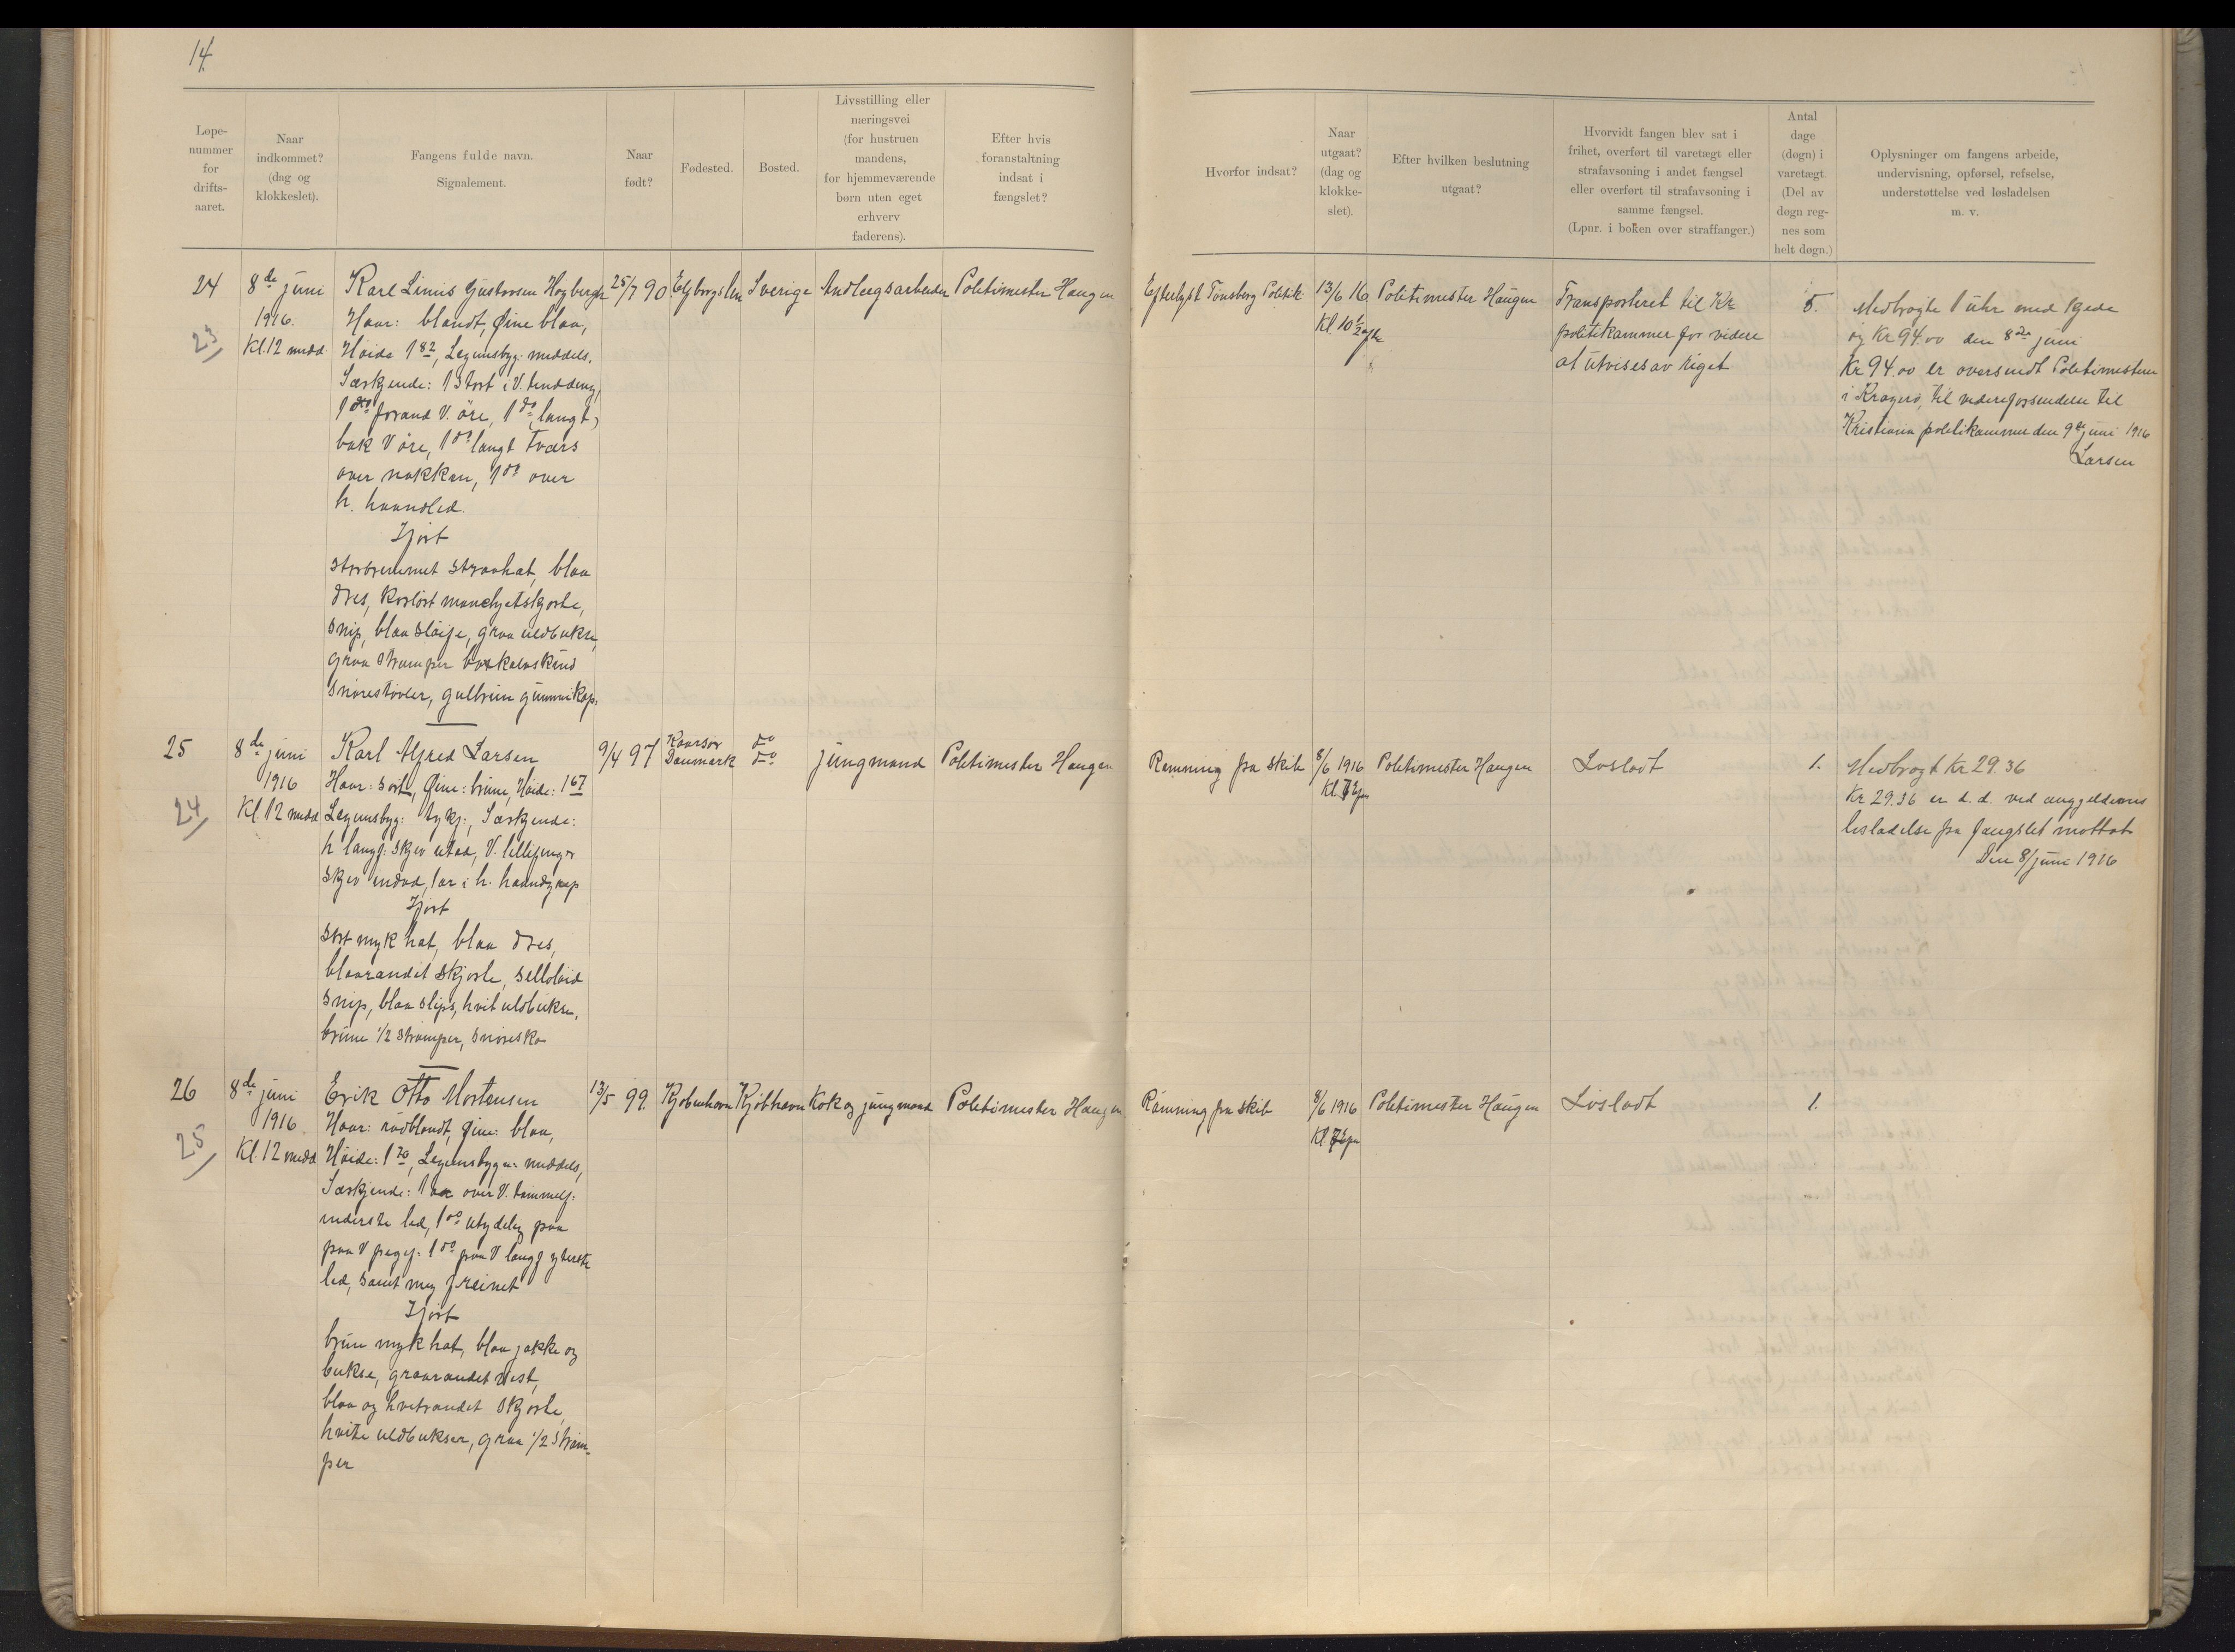 14.
Løpe-
nummer
for
drifts-
aaret.
Naar
indkommet?
(dag og
klokkeslet).
Fangens fulde navn.
Signalement.
Naar
født?
Fødested.
Bosted.
Livsstilling eller
næringsvei
(for hustruen
mandens,
for hjemmeværende
børn uten eget
erhverv
faderens).
Efter hvis
foranstaltning
indsat i
fængslet?
Hvorfor indsat?
Naar
utgaat?
(dag og
klokke-
slet).
Efter hvilken beslutning
utgaat?
Hvorvidt fangen blev sat i
frihet, overført til varetægt eller
strafavsoning i andet fængsel
eller overført til strafavsoning i
samme fængsel.
(Lpnr. i boken over straffanger.)
Antal
dage
(døgn) i
varetægt.
(Del av
døgn reg-
nes som
helt døgn.)
Oplysninger om fangens arbeide,
undervisning, opførsel, refselse,
understøttelse ved løsladelsen
m. v.
24
23
8de juni
1916.
Kl. 12 midd
Karl Linus Gustavsen Høgberg
Haar: blondt, Øine blaa,
Høide 1 82, Legemsbyg: middels.
Særkjende: 1 stort i V.
1 do forand V. øre, 1 do langt,
bak V øre, 1 do langt tvers
over nakken, 1 do over
h. haandled.
Iført
storbremmet straahat, blaa
dres, manchetskjorte,
snip, blaa sløife, graa uldbukse,
graa strømper bokskalvskind
snørestøvler, gulbrun gummikap.
25/7 90
Elfborgs len
Sverige
Anlægsarbeider
Politimester Haugen
Efterlyst Tønsberg Politik.
13/6 16.
Kl. 10 1/2
Politimester Haugen
Transporteret til Kr
politikammer for videre
at utvises av riget
5.
Medbragte 1 uhr med kjede
og Kr 94.00 den 8de juni
Kr 94.00 er oversendt Politimesteren
i Kragerø, til videreforsendelse til
Kristiania politikammer den 9de juni 1916
Larsen
25
24
8de juni
1916
Kl. 12 midd
Karl Alfred Larsen
Haar: sort, Øine: brune, Høide: 1 67
Legemsbyg: tykf:, Særkjende:
h. langf: skjev utad, V. lillefinger
skjev indad, 1 ar i h. haandgrep
Iført
sort myk hat, blaa dres,
blaarandet skjorte, selloloid
snip, blaa slips, hvit uldbukse,
brune 1/2 strømper, snøresko
9/4 97
Korsør
Danmark
do
do
jungmand
Politimester Haugen
Rømning fra skib
8/6 1916
Kl. 7
Politimester Haugen
Løsladt
1.
Medbragt Kr 29.36
Kr 29.36 er d. d. ved angjeldenes
løsladelse fra fængslet mottat
Den 8/juni 1916
26
25
8de juni
1916
Kl. 12 midd
Erik Otto Mortensen
Haar: rødblondt, Øine: blaa,
Høide: 1 70, Legemsbygn: middels,
Særkjende: 1 ar over V. tommelf:
inderste led, 1 do utydelig paa
paa V pegef: 1 do paa V langf yterste
led, samt meg freinet
Iført
brun myk hat, blaa jakke og
bukse, graarandet vest,
blaa og hvitrandet skjorte,
hvite uldbukser, graa 1/2 strøm-
per
13/5 99.
Kjøbenhavn
Kjøbhavn
Kok og jungmand
Politimester Haugen
Rømning fra skib
8/6 1916
Kl. 7
Politimester Haugen
Løsladt
1.